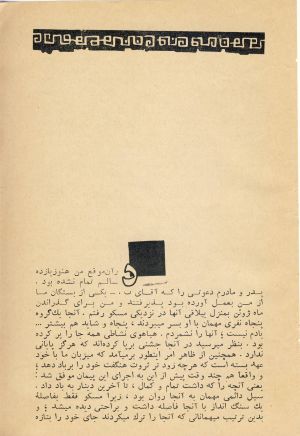 درآن‌موقع من هنوز یازده
سالم تمام نشده بود .
پدر و مادرم دعوتی را که آقای ب . ـ یکی از بستگان ما
از من بعمل آورده بود پذیرفتند و من برای گذراندن
ماه ژوئن بمنزل ییلاقی آنها در نزدیکی مسکو رفتم . آنجا یك‌گروه
پنجاه نفری مهمان با او بسر میبردند ، پنجاه و شاید هم بیشتر ...
یادم نیست ؛ آنها را نشمردم . هیاهوی نشاطی همه جا را پر کرده
بود . بنظر میرسید در آنجا جشنی برپا کرده‌اند که هرگز پایانی
ندارد . همچنین از ظاهر امر اینطور برمیآمد که میزبان ما با خود
عهد بسته است که هرچه زود تر ثروت هنگفت خود را برباد دهد ؛
و واقعا هم چند وقت پیش از این به اجرای این پیمان موفق شد :
یعنی آنچه را که داشت تمام و کمال ، تا آخرین دینار به باد داد .
سیل دائمی مهمان به آنجا روان بود ، زیرا مسکو فقط بفاصلهٔ
یك سنگ انداز با آنجا فاصله داشت و براحتی دیده میشد ؛ و
بدین ترتیب میهمانانی که آنجا را ترك میکردند جای خود را بتازه